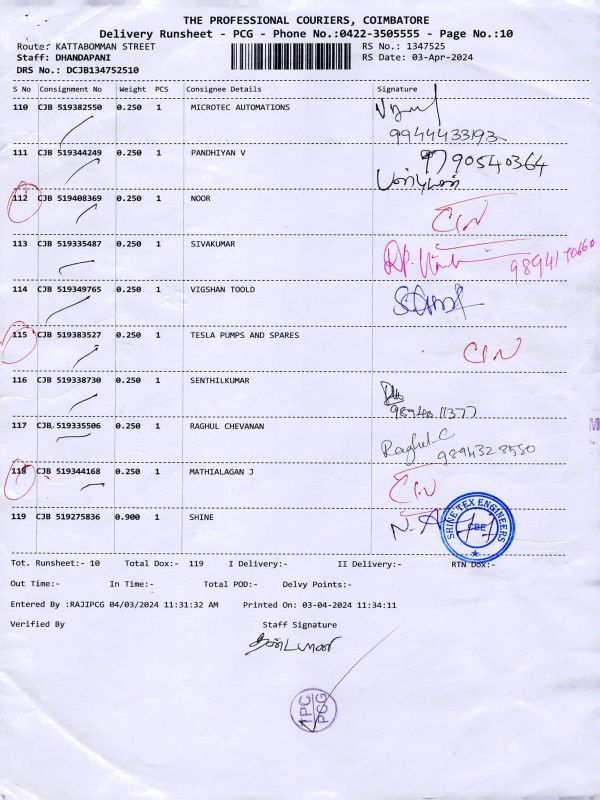 THE PROFESSIONAL COURIERS, COIMBATORE
Delivery Runsheet - PCG - Phone No.:0422-3505555 - Page No.:10
Route: KATTABOMMAN STREET RS No.: 1347525
Staff: DHANDAPANI RS Date: 03-Apr-2024
DRS No.: DCJB134752510
S No Consignment No Weight PCS Consignee Details Signature
110 CJB 519382550 0.250 1 MICROTEC AUTOMATIONS
9944433193
111 CJB 519344249 0.250 1 PANDHIYAN V 9790540364
112 CJB 519408369 0.250 1 NOOR
CIN
113 CJB 519335487 0.250 1 SIVAKUMAR
114 CJB 519349765 0.250 1 VIGSHAN TOOLD
115 CJB 519383527 0.250 1 TESLA PUMPS AND SPARES
CIN
116 CJB 519338730 0.250 1 SENTHILKUMAR
117 CJB 519335506 0.250 1 RAGHUL CHEVANAN
Raghul-C 9894328550
118 CJB 519344168 0.250 1 MATHIALAGAN J
CIN
119 CJB 519275836 0.900 1 SHINE
SHINE TEX ENGINEERS
CBE
Tot. Runsheet:- 10 Total Dox:- 119 I Delivery:- II Delivery:- RTN Dox:-
Out Time:- In Time:- Total POD:- Delvy Points:-
Entered By :RAJIPCG 04/03/2024 11:31:32 AM Printed On: 03-04-2024 11:34:11
Verified By Staff Signature
TPC
PCG